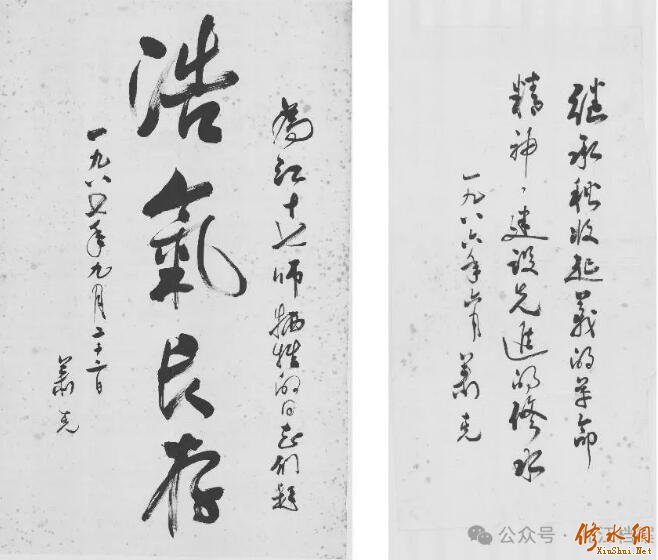 為红十七师牺牲的同志们题
浩氣長存
一九八五年九月二十二日
萧克
继承秋收起義的革命
精神，建设先進的修水
一九八六年六月 萧克
公众号 ·
修水網
XiuShui.Net